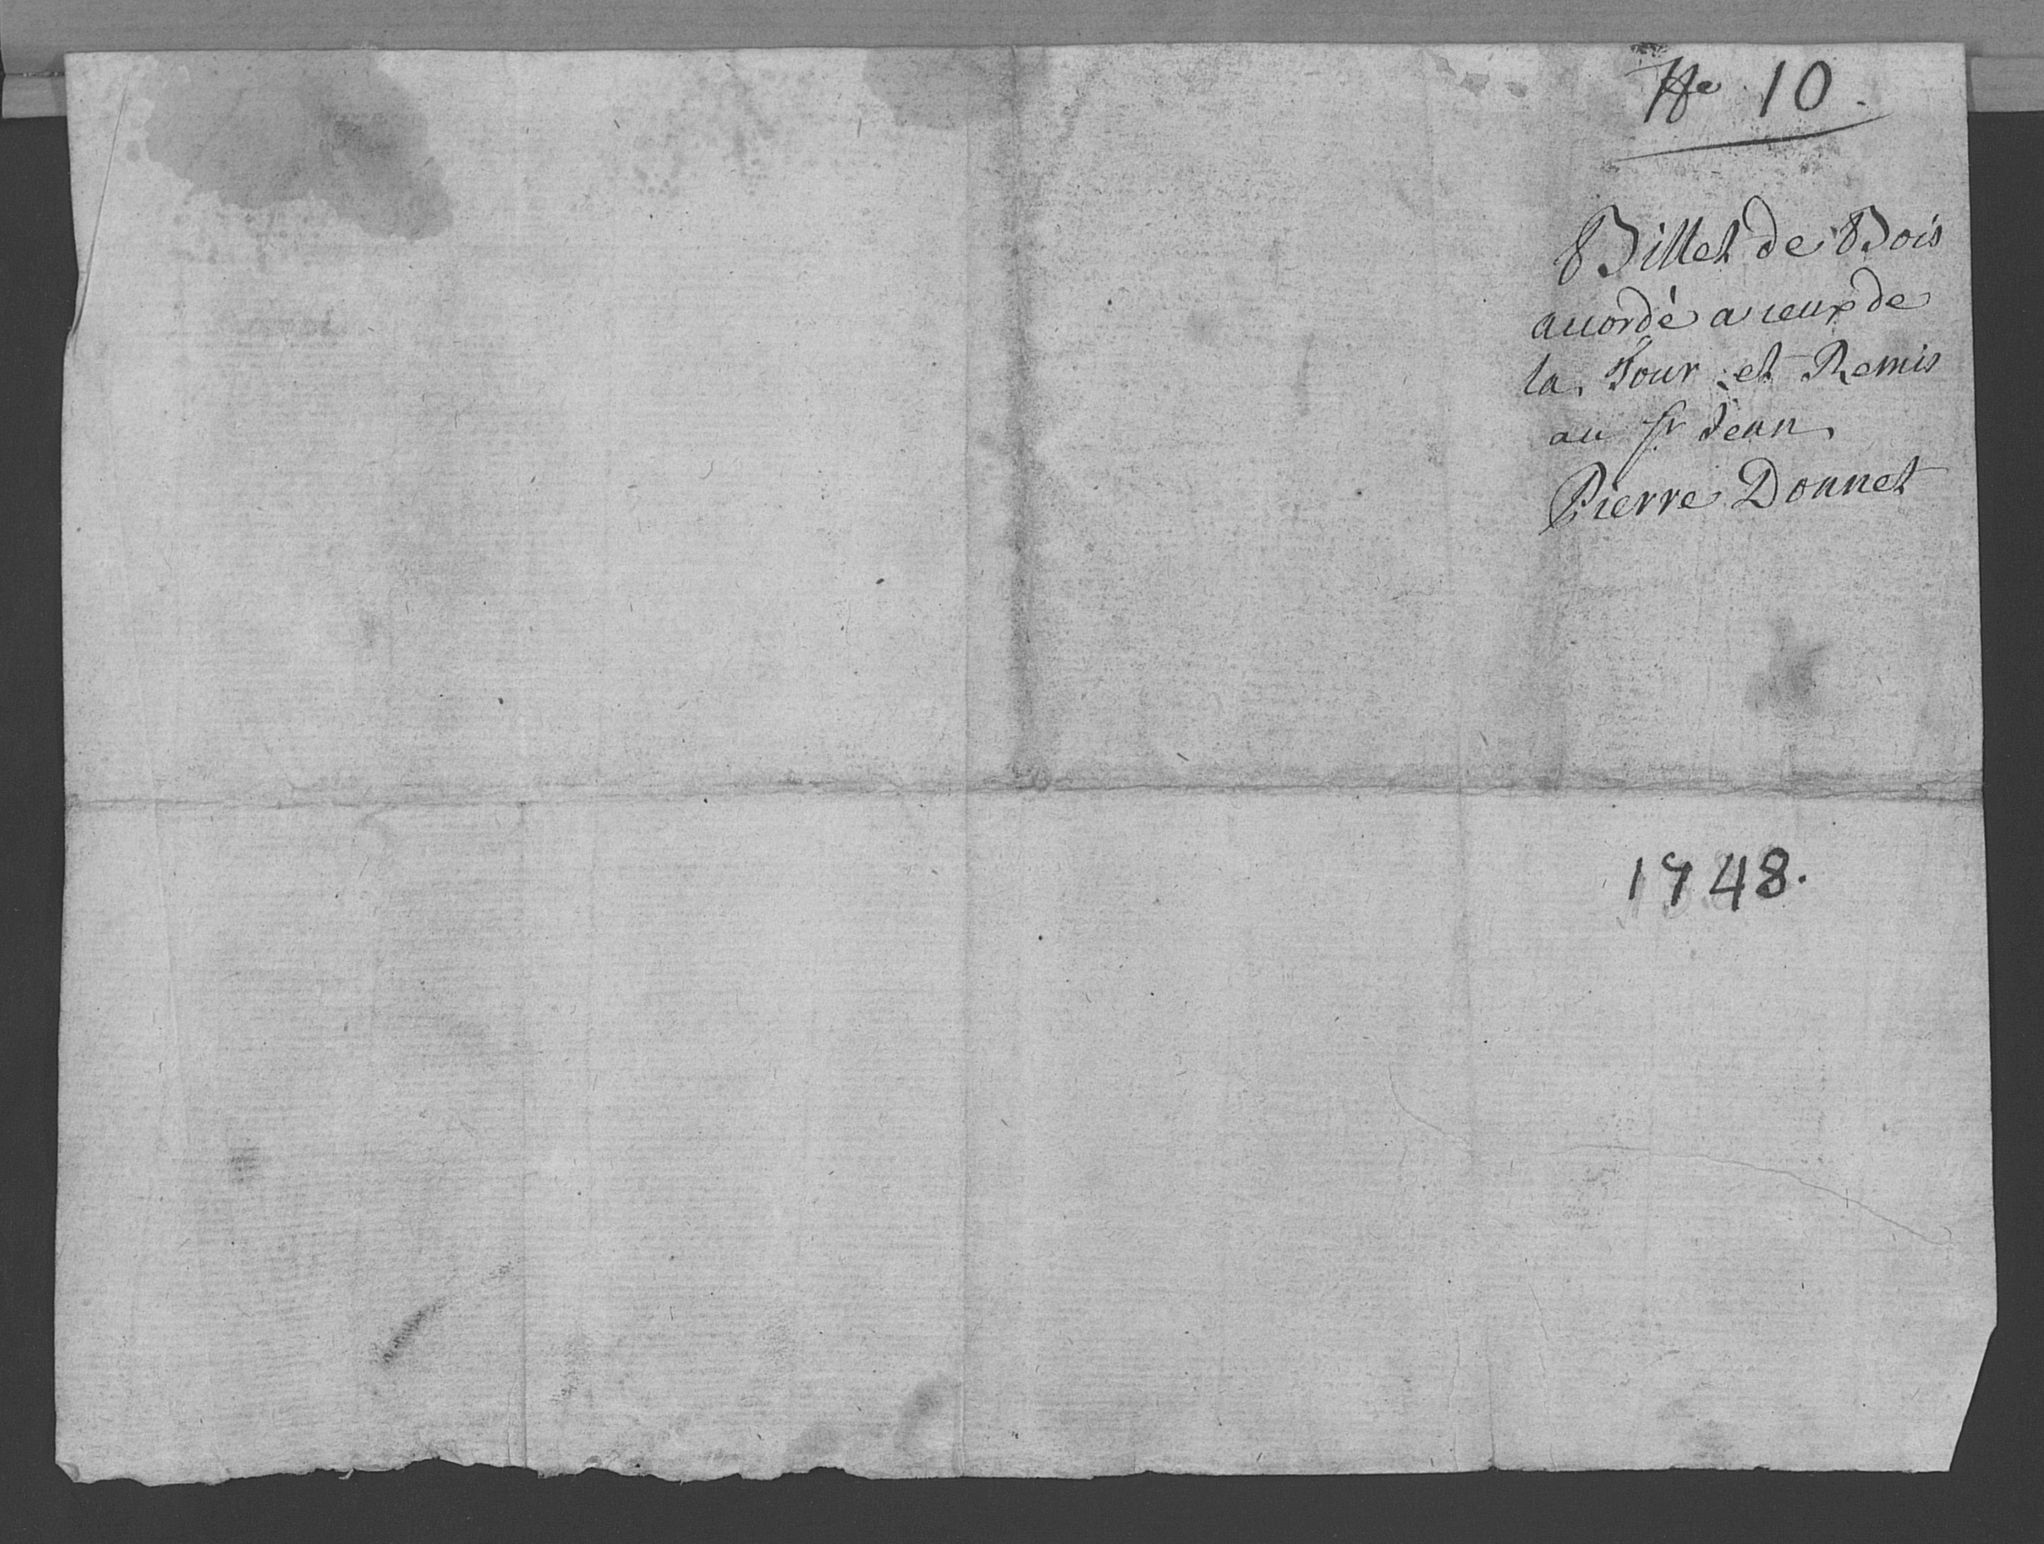 10.
Billet de Bois
accordé a ceux de
la Tour et Remis
au Sr Jean
Pierre Donnet
1748.